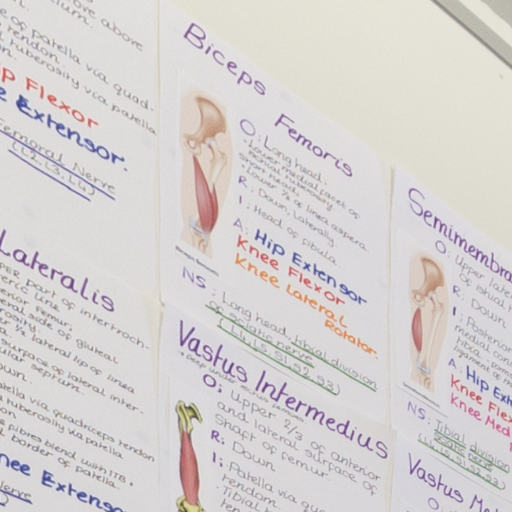 one above
of patella via quad.
tendon.
tuberosity via patella
p Flexor
e Extensor.
Femoral Nerve
(L2, L3, L4)
Biceps Femoris
O: Long head.
Short head:
R: Down, Laterally.
I: Head of fibula.
A: Hip Extensor
Knee Flexor
Knee Lateral
Rotator.
NS: Long head, tibial division
of sciatic nerve
(L4, L5, S1, S2, S3)
Semimembra
O: Upper late
of ischial t
R: Down
I: Posterior
medial con
A: Hip Ext
Knee Fle
Knee Med
NS: Tibial division
sciatic nerve
(L4, L5, S1, S2, S3)
Lateralis
per part of intertroch-
eric line
erior femur.
eral side of gluteal
rosity.
lateral lip of linea
surface of lateral inter-
ular septum.
own.
atella via quadriceps tendon
tuberosity via patella
fibres blend with ITB.
border of patella.
nee Extenso
Nerve
Vastus Intermedius
O: Upper 2/3 of anterior
and lateral surface of
shaft of femur.
R: Down
I: Patella via qu
tendon
Tibial t
Vastus Me
O: